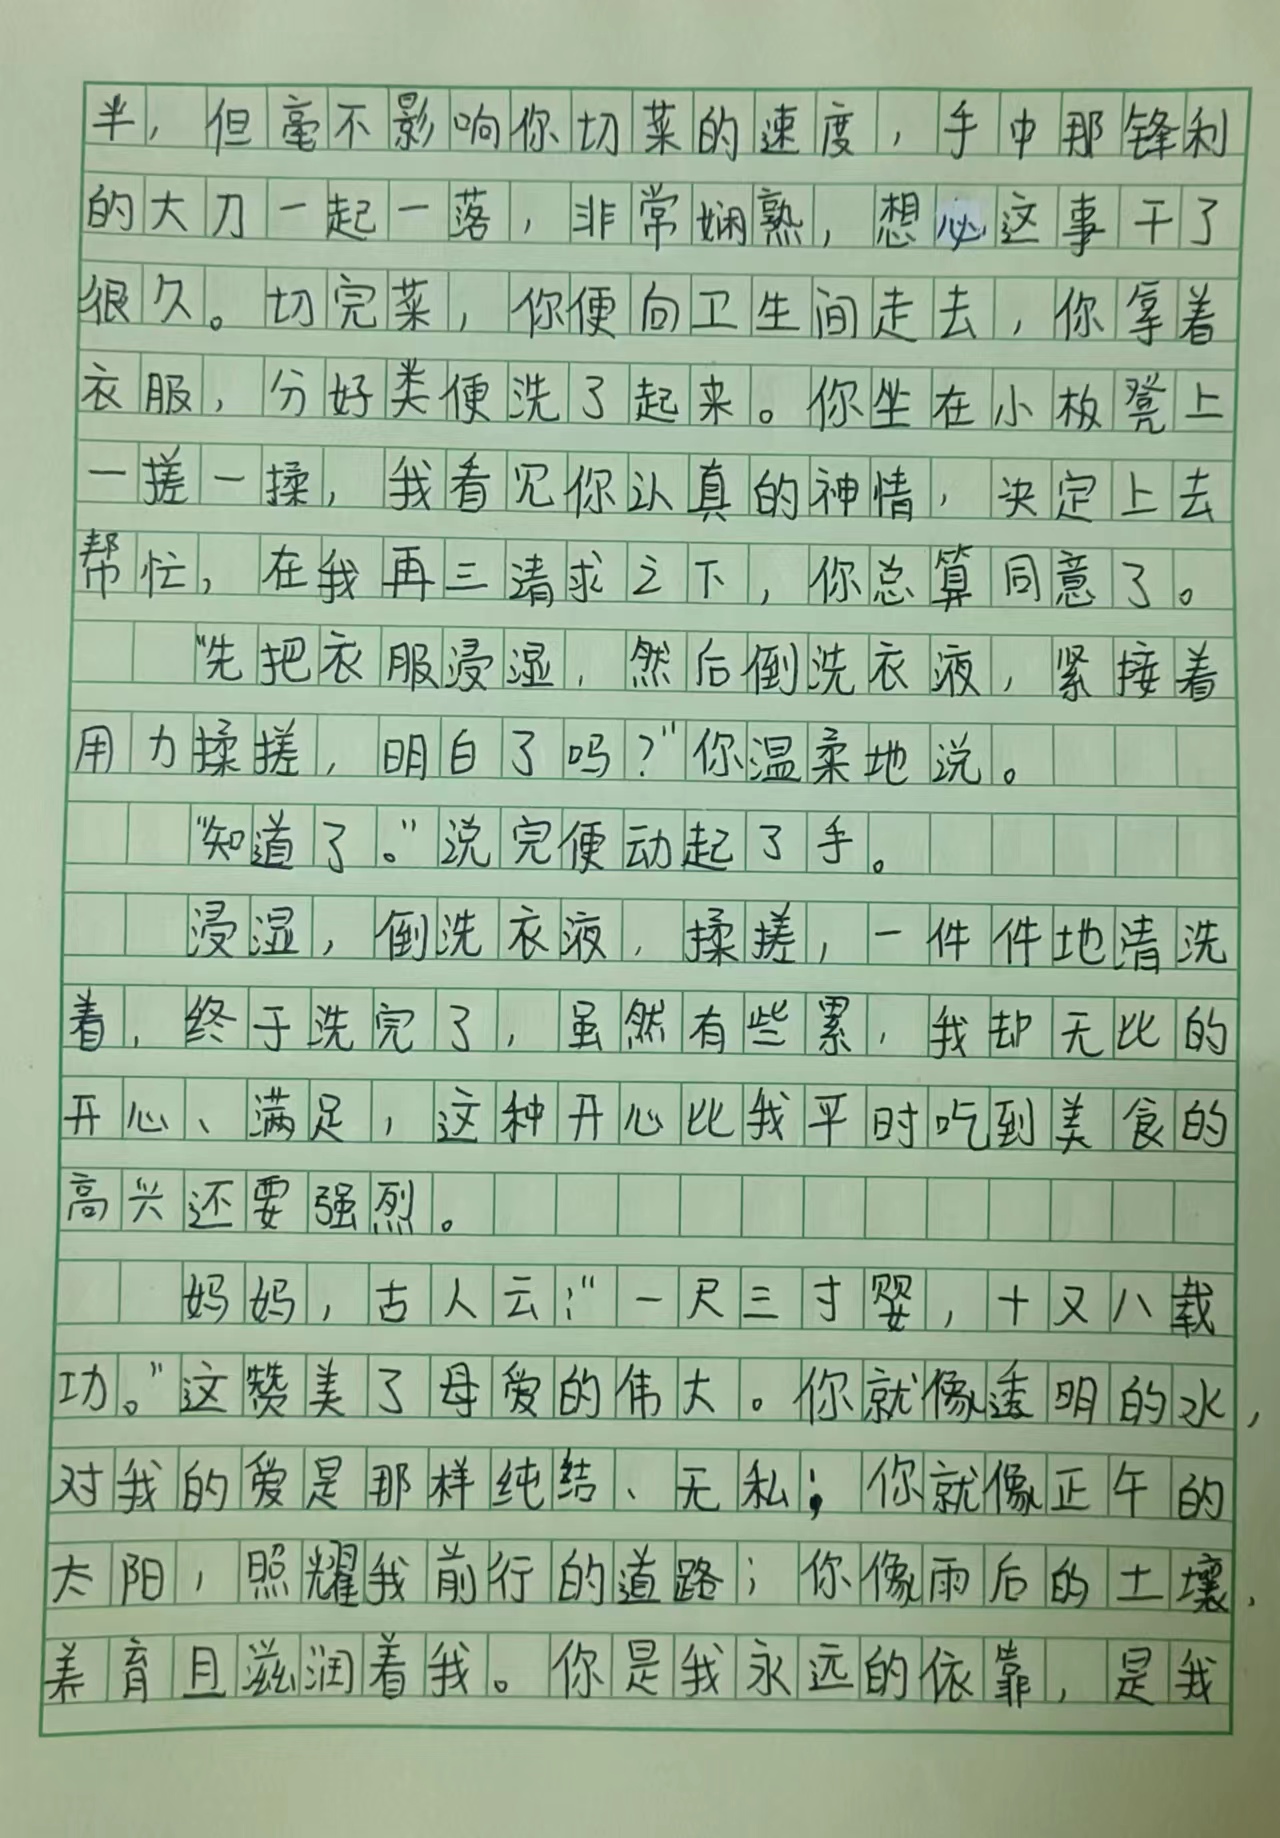 半，但毫不影响你切菜的速度，手中那锋利
的大刀一起一落，非常娴熟，想必这事干了
很久。切完菜，你便向卫生间走去，你拿着
衣服，分好类便洗了起来。你坐在小板凳上
一搓一揉，我看见你认真的神情，决定上去
帮忙，在我再三请求之下，你总算同意了。
“先把衣服浸湿，然后倒洗衣液，紧接着
用力揉搓，明白了吗？”你温柔地说。
“知道了。”说完便动起了手。
浸湿，倒洗衣液，揉搓，一件件地清洗
着，终于洗完了，虽然有些累，我却无比的
开心、满足，这种开心比我平时吃到美食的
高兴还要强烈。
妈妈，古人云：“一尺三寸婴，十又八载
功。”这赞美了母爱的伟大。你就像透明的水，
对我的爱是那样纯结、无私；你就像正午的
太阳，照耀我前行的道路；你像雨后的土壤，
养育且滋润着我。你是我永远的依靠，是我